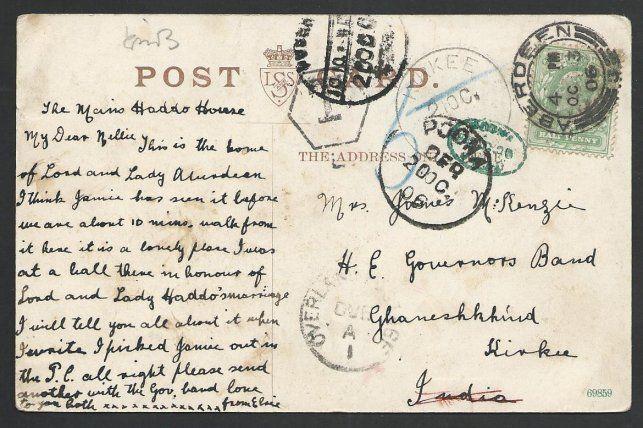 POST CARD.
THE ADDRESS
The Mains Haddo House
My Dear Nellie This is the home
of Lord and Lady Aberdeen
I think Jamie has seen it before
we are about 10 mins. walk from
it here it is a lonely place I was
at a ball there in honour of
Lord and Lady Haddo's marriage
I will tell you all about it when
I write I picked Jamie out in
the P.C. all right please send
another with the Gov. band love
to you both xxxxxxxxxxxxxx from Elsie
Mrs James McKenzie
H. E. Governors Band
Ghaneshkhind
Kirkee
India
ABERDEEN
4 PM
OC 3
06
HALFPENNY
KIRKEE
2 OC
DEP
20 OC
06
OVERLAND
A
1
T
69859